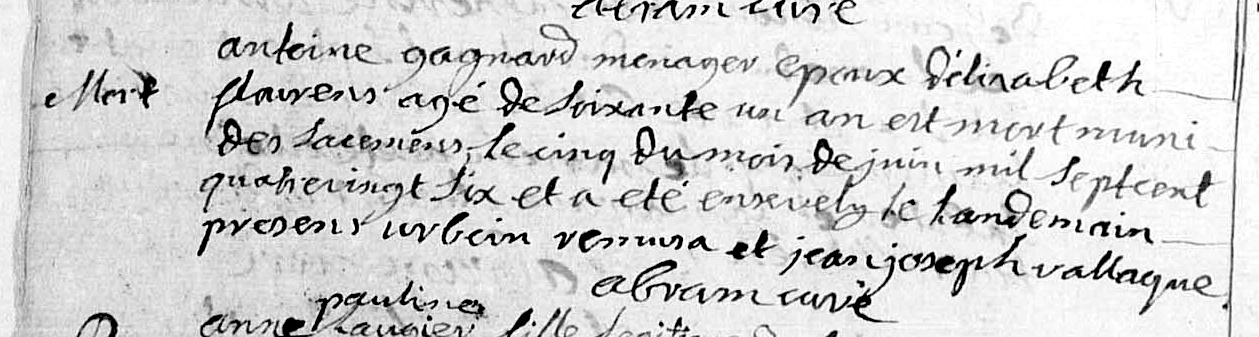 abram curé
antoine gagnard menager epoux d'elisabeth
Mort
flourens agé de soixante un an est mort muni
des sacemens, le cinq du mois de juin mil septcent
quatrevingt six et a eté ensevely le landemain
presens urbein remusa et jean joseph vallaque.
abram curé
pauline
anne augier fille